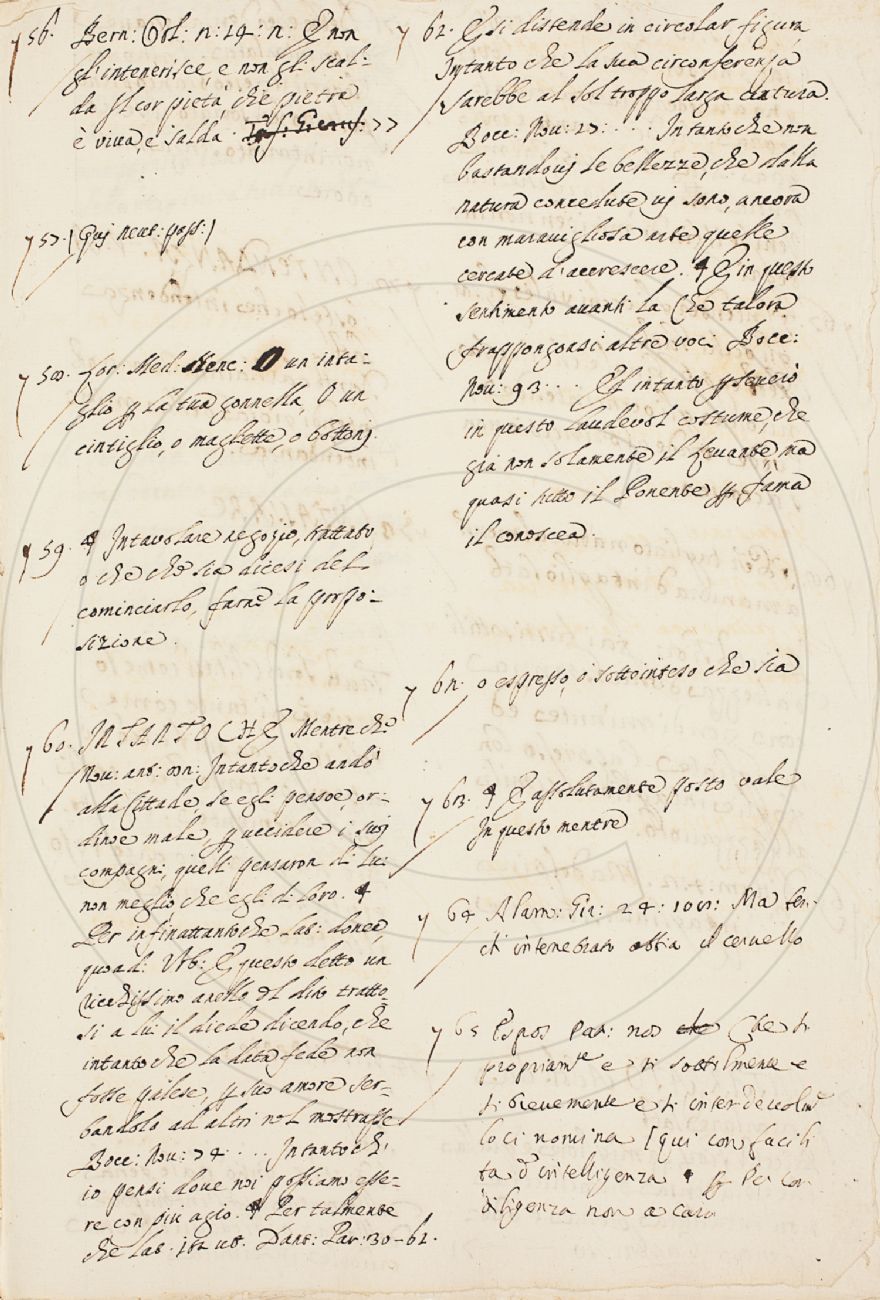 56. Bern: Orl: n: 14: n: E non
gl'intenerisce, e non gli scal-
da Il cor pietà, che pietra
è viva, e salda.
57. [Qui neut: pass:]
58. Lor: Med: Nenc: O un inta-
glio per la tua gonnella, O un
cintiglio, o magliette, o bottonj.
59. ¶ Intavolare negozio, trattato,
o che che sia dicesi del
cominciarlo, farne la propo-
sizione.
60. INTANTO CHE Mentre che
Nov: ant: Intanto che andò
alla Cittade, se egli pensoe, or-
dinoe male, per uccidere i suoj
compagni, quelli pensaron di lui
non meglio, che egli di loro. ¶
Per infinattantoche Lat: donec,
quoad: Urb: E questo detto un
ricchissimo anello di dito tratto-
si a lui il diede dicendo, che
intanto che la data fede non
fosse palese, per suo amore ser-
bandolo ad altri nol mostrasse
Bocc: Nov: 74. . . . Intanto ch'
io pensi dove noi possiamo esse-
re con più agio. ¶ Per talmente
che Lat. ita ut. Dant: Par: 30-61.
62. E si distende in circolar figura
Intanto che la sua circonferenza
Sarebbe al Sol troppo larga cintura.
Bocc: Nov: 27: . . . Intanto che non
bastandovj le bellezze, che dalla
natura concedute vj sono, ancora
con maravigliosa arte quelle
cercate d'accrescere. ¶ E in questo
sentimento avanti la Che talora
frappongonsi altre voci Bocc:
Nov: 93. . . Et intanto perseverò
in questo laudevol costume, che
già non solamente il Levante, ma
quasi tutto il Ponente per fama
il conoscea.
o espresso, o sottointeso che sia
63. ¶ E assolutamente posto vale
In questo mentre
64 Alam: Gir: 24: Ma ten-
ti intenebrato abbia il cervello
65 Espos Pat: nos Che ti
propriamte e ti sottilmente e
ti brevemente e ti interdevolmte
lo ci nomina [qui con facili
tà d'intelligenza ¶ Per con
diligenza non a caso